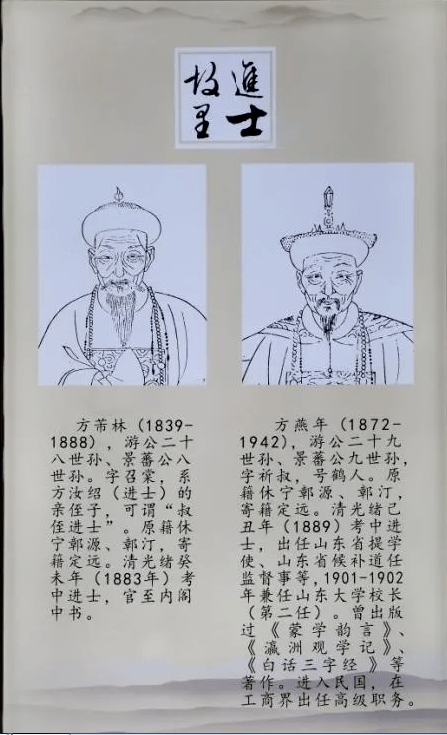 進士
故里
方芾林（1839-
1888），游公二十
八世孙、景蕃公八
世孙。字召棠，系
方汝绍（进士）的
亲侄子，可谓“叔
侄进士”。原籍休
宁鄣源、鄣汀，寄
籍定远。清光绪癸
未年（1883年）考
中进士，官至内阁
中书。
方燕年（1872-
1942），游公二十九
世孙、景蕃公九世孙，
字祈叔，号鹤人。原
籍休宁鄣源、鄣汀，
寄籍定远。清光绪己
丑年（1889）考中进
士，出任山东省提学
使、山东省候补道任
监督事等，1901-1902
年兼任山东大学校长
（第二任）。曾出版
过《蒙学韵言》、
《瀛洲观学记》、
《白话三字经》等
著作。进入民国，在
工商界出任高级职务。